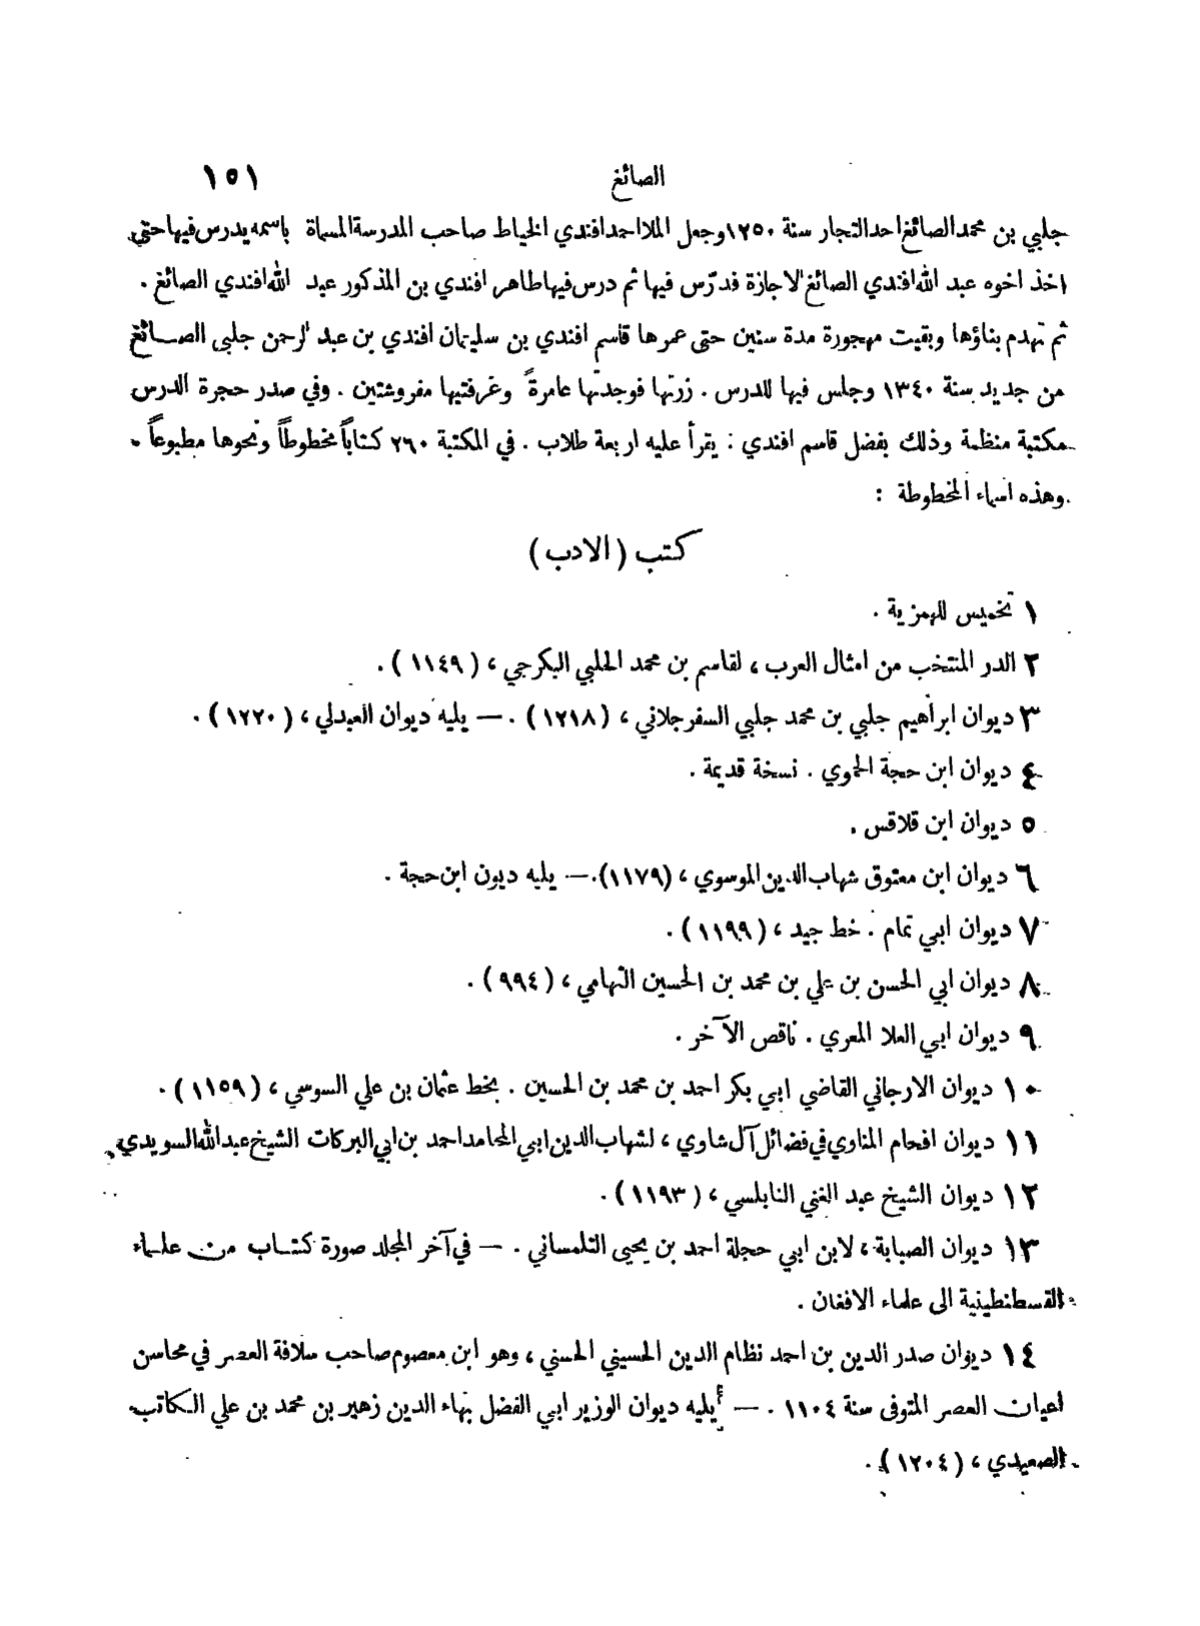 الصائغ ١٥١
جلبي بن محمد الصائغ احد التجار سنة ١٢٥٠ وجعل الملا احمد افندي الخياط صاحب المدرسة المسماة باسمه يدرس فيها حتى
اخذ اخوه عبد الله افندي الصائغ الاجازة فدرّس فيها ثم درس فيها طاهر افندي بن المذكور عبد الله افندي الصائغ .
ثم تهدم بناؤها وبقيت مهجورة مدة سنين حتى عمرها قاسم افندي بن سليمان افندي بن عبد الرحمن جلبي الصــائغ
من جديد سنة ١٣٤٠ وجلس فيها للدرس . زرتها فوجدتها عامرةً وغرفتيها مفروشتين . وفي صدر حجرة الدرس
مكتبة منظمة وذلك بفضل قاسم افندي . يقرأ عليه اربعة طلاب . في المكتبة ٢٦٠ كتاباً مخطوطاً ونحوها مطبوعاً .
وهذه اسماء المخطوطة :
كتب ( الادب )
١ تخميس للهمزية .
٢ الدر المنتخب من امثال العرب ، لقاسم بن محمد الحلبي البكرجي ، ( ١١٤٩ ) .
٣ ديوان ابراهيم جلبي بن محمد جلبي السفرجلاني ، ( ١٢١٨ ) . — يليه ديوان العبدلي ، ( ١٢٢٠ ) .
٤ ديوان ابن حجة الحموي . نسخة قديمة .
٥ ديوان ابن قلاقس .
٦ ديوان ابن معتوق شهاب الدين الموسوي ، (١١٧٩). — يليه ديون ابن حجة .
٧ ديوان ابي تمام . خط جيد ، ( ١١٩٩ ) .
٨ ديوان ابي الحسن بن علي بن محمد بن الحسين التهامي ، ( ٩٩٤ ) .
٩ ديوان ابي العلا المعري . ناقص الآخر .
١٠ ديوان الارجاني القاضي ابي بكر احمد بن محمد بن الحسين . بخط عثمان بن علي السوسي ، ( ١١٥٩ ) .
١١ ديوان افحام المناوي في فضائل آل شاوي ، لشهاب الدين ابي المحامد احمد بن ابي البركات الشيخ عبد الله السويدي .
١٢ ديوان الشيخ عبد الغني النابلسي ، ( ١١٩٣ ) .
١٣ ديوان الصبابة ، لابن ابي حجلة احمد بن يحيى التلمساني . — في آخر المجلد صورة كتـاب من علمـاء
القسطنطينية الى علماء الافغان .
١٤ ديوان صدر الدين بن احمد نظام الدين الحسيني الحسني ، وهو ابن معصوم صاحب سلافة العصر في محاسن
اعيان العصر المتوفى سنة ١١٠٤ . — يليه ديوان الوزير ابي الفضل بهاء الدين زهير بن محمد بن علي الكاتب
الصعيدي ، ( ١٢٠٤ ) .